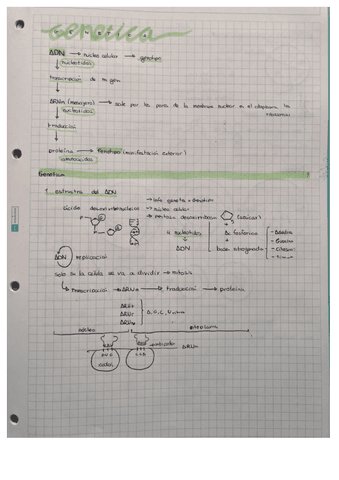 Genética
ADN → núcleo celular → genotipo
nucleótidos
transcripción de un gen
ARNm (mensajero) → sale por los poros de la membrana nuclear en el citoplasma los ribosomas
nucleótidos
traducción
proteína → fenotipo (manifestación exterior)
aminoácidos
Genética
1. estructura del ADN
→ info genética + genotipo
ácido desoxirribonucleico → núcleo celular
→ pentosa desoxirribosa (azúcar)
P
nucleótidos
ác. fosfórico
ADN
base nitrogenada
- Adenina
- Guanina
- Citosina
- Timina
ADN replicación
solo si la célula se va a dividir → mitosis
transcripción → ARNm → traducción → proteína
ARNm
ARNr
ARNt
A, G, C, Uracilo
núcleo
anticodón
ARNm
codón